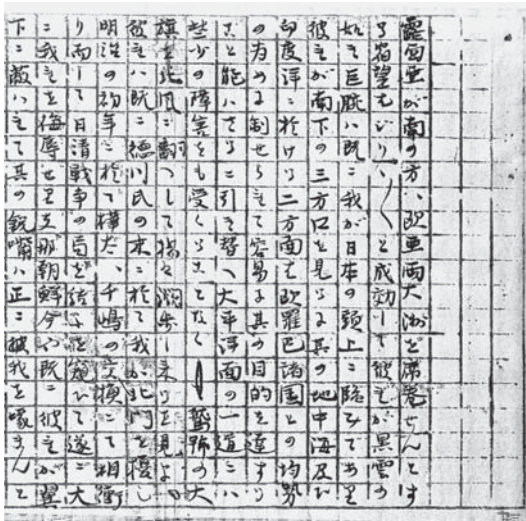 露西亜が南の方、欧亜両大洲を席巻せんとす
る宿望もじり〱と成効して彼が黒雲の
如き巨腕ハ既ニ我が日本の頭上ニ臨みてあり
彼れが南下の三方口を見るに其の地中海及び
印度洋ニ於ける二方面は欧羅巴諸国との均勢
の為めに制せられて容易に其の目的を達する
こと能ハざるに引き替へ太平洋面の一道ニハ
些少の障害をも受くることなく 鷲章の大
旗を北風ニ翻へして揚々濶歩し来りを見よ、
彼れハ既ニ徳川氏の末ニ於て我が北門を擾し
明治の初年ニ於て樺太、千嶋の交換にて相衝
り而して日清戦争の局を結ぶを窺ひて遂ニ大
ニ我れを侮辱せり支那朝鮮今や既ニ彼れが翼
下ニ敵ハれて其の鋭嘴ハ正ニ被我を啄まんと